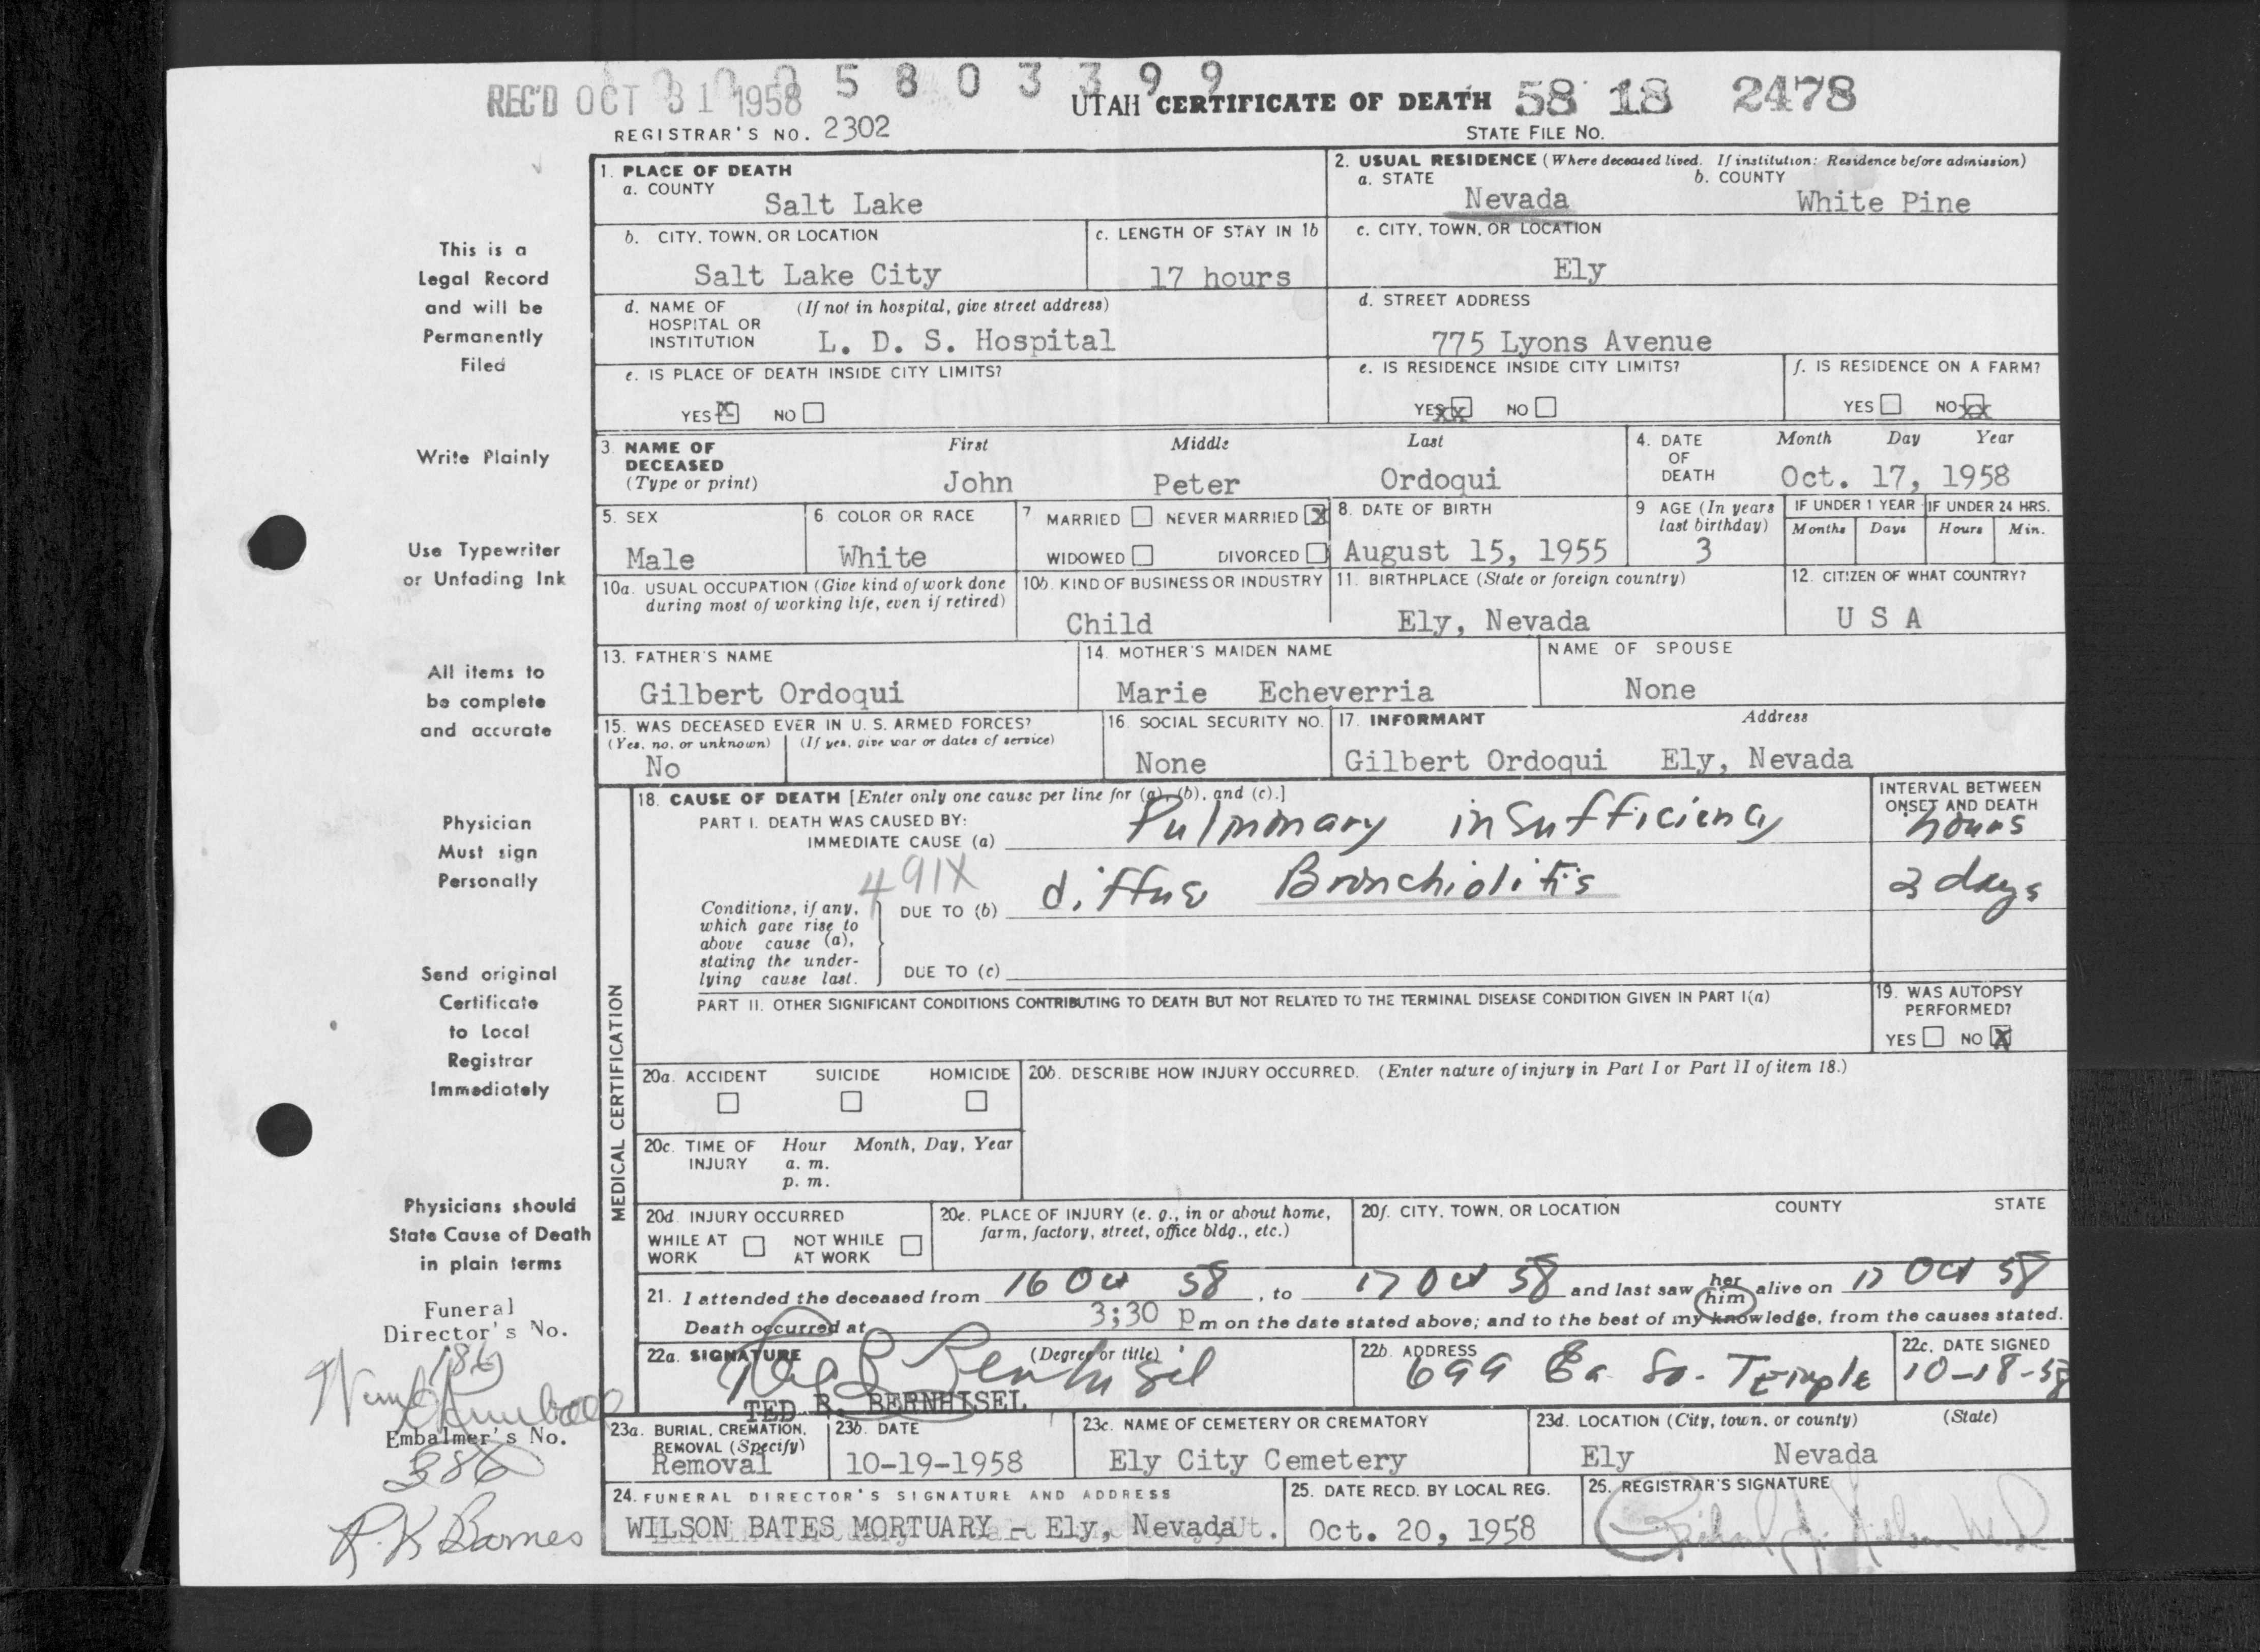 1 0 0 5 8 0 3 3 9 9
REC'D OCT 31 1958 UTAH CERTIFICATE OF DEATH 58 18 2478
REGISTRAR'S NO. 2302 STATE FILE NO.
This is a
Legal Record
and will be
Permanently
Filed
Write Plainly
Use Typewriter
or Unfading Ink
All items to
be complete
and accurate
Physician
Must sign
Personally
Send original
Certificate
to Local
Registrar
Immediately
Physicians should
State Cause of Death
in plain terms
Funeral
Director's No.
186
Embalmer's No.
386
R. K Barnes
1. PLACE OF DEATH
a. COUNTY
Salt Lake
2. USUAL RESIDENCE (Where deceased lived. If institution: Residence before admission)
a. STATE b. COUNTY
Nevada White Pine
b. CITY, TOWN, OR LOCATION
Salt Lake City
c. LENGTH OF STAY IN 1b
17 hours
c. CITY, TOWN, OR LOCATION
Ely
d. NAME OF (If not in hospital, give street address)
HOSPITAL OR
INSTITUTION L. D. S. Hospital
d. STREET ADDRESS
775 Lyons Avenue
e. IS PLACE OF DEATH INSIDE CITY LIMITS?
YES X NO
e. IS RESIDENCE INSIDE CITY LIMITS?
YES XX NO
f. IS RESIDENCE ON A FARM?
YES NO XX
3. NAME OF First Middle Last
DECEASED
(Type or print) John Peter Ordoqui
4. DATE Month Day Year
OF
DEATH Oct. 17, 1958
5. SEX
Male
6. COLOR OR RACE
White
7 MARRIED NEVER MARRIED X
WIDOWED DIVORCED
8. DATE OF BIRTH
August 15, 1955
9 AGE (In years
last birthday)
3
IF UNDER 1 YEAR IF UNDER 24 HRS.
Months Days Hours Min.
10a. USUAL OCCUPATION (Give kind of work done
during most of working life, even if retired)
10b. KIND OF BUSINESS OR INDUSTRY
Child
11. BIRTHPLACE (State or foreign country)
Ely, Nevada
12. CITIZEN OF WHAT COUNTRY?
U S A
13. FATHER'S NAME
Gilbert Ordoqui
14. MOTHER'S MAIDEN NAME
Marie Echeverria
NAME OF SPOUSE
None
15. WAS DECEASED EVER IN U. S. ARMED FORCES?
(Yes, no, or unknown) (If yes, give war or dates of service)
No
16. SOCIAL SECURITY NO.
None
17. INFORMANT Address
Gilbert Ordoqui Ely, Nevada
MEDICAL CERTIFICATION
18. CAUSE OF DEATH [Enter only one cause per line for (a), (b), and (c).]
PART I. DEATH WAS CAUSED BY:
IMMEDIATE CAUSE (a) Pulmonary insufficiency
INTERVAL BETWEEN
ONSET AND DEATH
hours
491X
Conditions, if any,
which gave rise to
above cause (a),
stating the under-
lying cause last.
DUE TO (b) diffuse Bronchiolitis
2 days
DUE TO (c)
PART II. OTHER SIGNIFICANT CONDITIONS CONTRIBUTING TO DEATH BUT NOT RELATED TO THE TERMINAL DISEASE CONDITION GIVEN IN PART I(a)
19. WAS AUTOPSY
PERFORMED?
YES NO X
20a. ACCIDENT SUICIDE HOMICIDE
20b. DESCRIBE HOW INJURY OCCURRED. (Enter nature of injury in Part I or Part II of item 18.)
20c. TIME OF Hour Month, Day, Year
INJURY a. m.
p. m.
20d. INJURY OCCURRED
WHILE AT NOT WHILE
WORK AT WORK
20e. PLACE OF INJURY (e. g., in or about home,
farm, factory, street, office bldg., etc.)
20f. CITY, TOWN, OR LOCATION COUNTY STATE
21. I attended the deceased from 16 Oct 58, to 17 Oct 58 and last saw her him alive on 17 Oct 58
Death occurred at 3:30 p m on the date stated above; and to the best of my knowledge, from the causes stated.
22a. SIGNATURE (Degree or title)
Ted R Bernhisel
TED R. BERNHISEL
22b. ADDRESS
699 Ea. So. Temple
22c. DATE SIGNED
10-18-58
23a. BURIAL, CREMATION,
REMOVAL (Specify)
Removal
23b. DATE
10-19-1958
23c. NAME OF CEMETERY OR CREMATORY
Ely City Cemetery
23d. LOCATION (City, town, or county) (State)
Ely Nevada
24. FUNERAL DIRECTOR'S SIGNATURE AND ADDRESS
WILSON BATES MORTUARY - Ely, Nevada
25. DATE RECD. BY LOCAL REG.
Oct. 20, 1958
25. REGISTRAR'S SIGNATURE